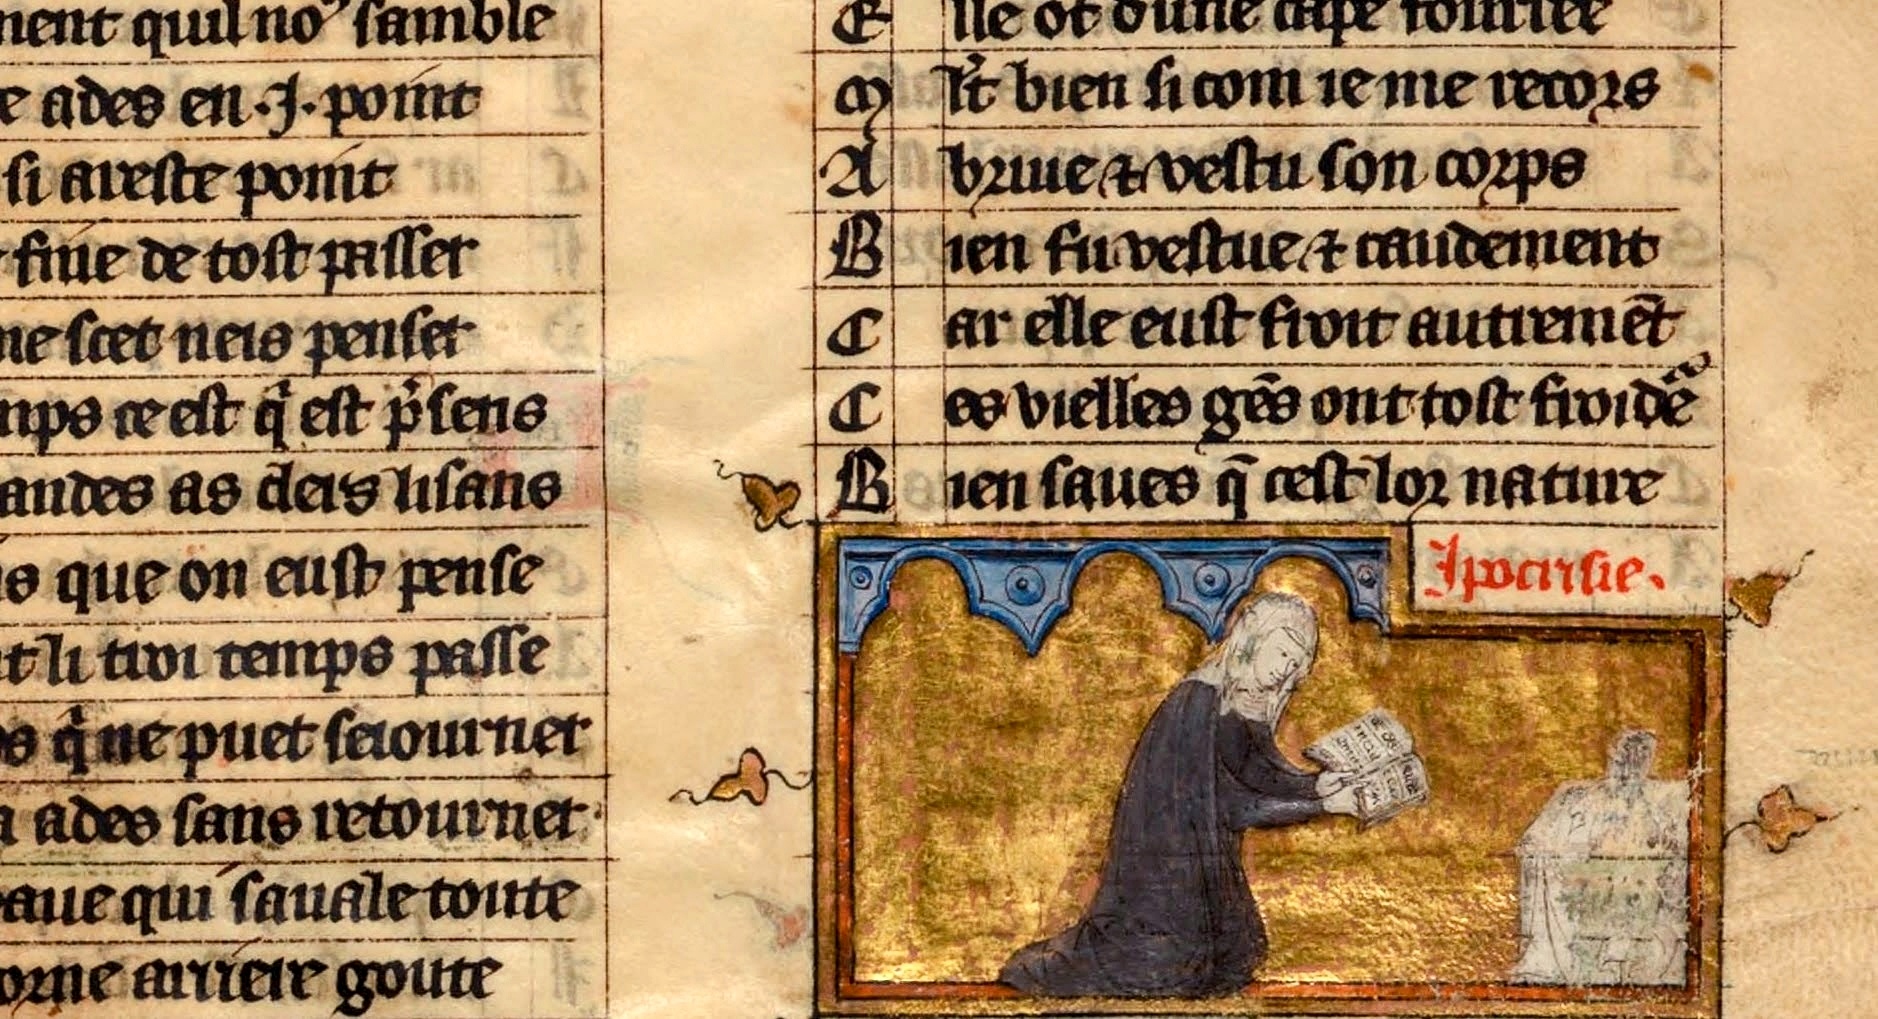 ment quil no⁹ samble
e ades en .J. point
si areste point
fine de tost passer
ne scet neis penser
mps ce est q̄ est p̄sens
andes as clers lisans
s que on eust pense
t li troi temps passe
s q̄ ne puet seiourner
a ades sans retourner
eaue qui sauale toute
orne arriere goute
E lle ot dune cape fourree
M lt̄ bien si com ie me recors
A briue ⁊ vestu son corps
B ien fu vestue ⁊ caudement
C ar elle eust froit autremēt
C es vielles gēs ont tost froidē
B ien saues q̄ cest lor nature
Ipocrisie.